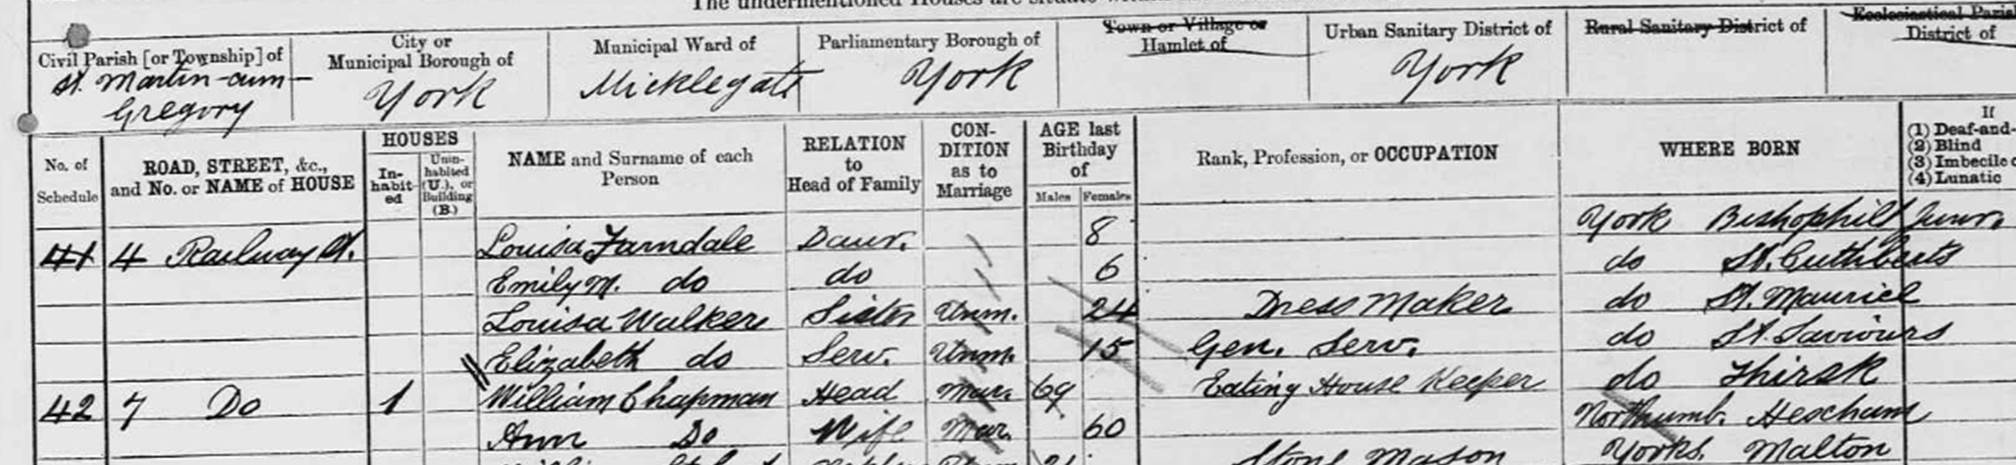 The undermentioned Houses are situate
Civil Parish [or Township] of
St. Martin-cum-
Gregory
City or
Municipal Borough of
York
Municipal Ward of
Micklegate
Parliamentary Borough of
York
Town or Village or
Hamlet of
Urban Sanitary District of
York
Rural Sanitary District of
Ecclesiastical Parish
District of
No. of
Schedule
ROAD, STREET, &c.,
and No. or NAME of HOUSE
HOUSES
In-
habit-
ed
Unin-
habited
(U.), or
Building
(B.)
NAME and Surname of each
Person
RELATION
to
Head of Family
CON-
DITION
as to
Marriage
AGE last
Birthday
of
Males Females
Rank, Profession, or OCCUPATION
WHERE BORN
If
(1) Deaf-and-
(2) Blind
(3) Imbecile o
(4) Lunatic
41 4 Railway St. Louisa Farndale Daur. 8 York Bishophill Junr.
Emily M. do do 6 do St. Cuthberts
Louisa Walker Sister Unm. 24 Dress Maker do St. Maurice
Elizabeth do Serv. Unm. 15 Gen. Serv. do St. Saviours
42 7 Do 1 William Chapman Head Mar. 69 Eating House Keeper do Thirsk
Ann Do Wife Mar. 60 Northumb. Hescham
21 Stone Mason Yorks. Malton